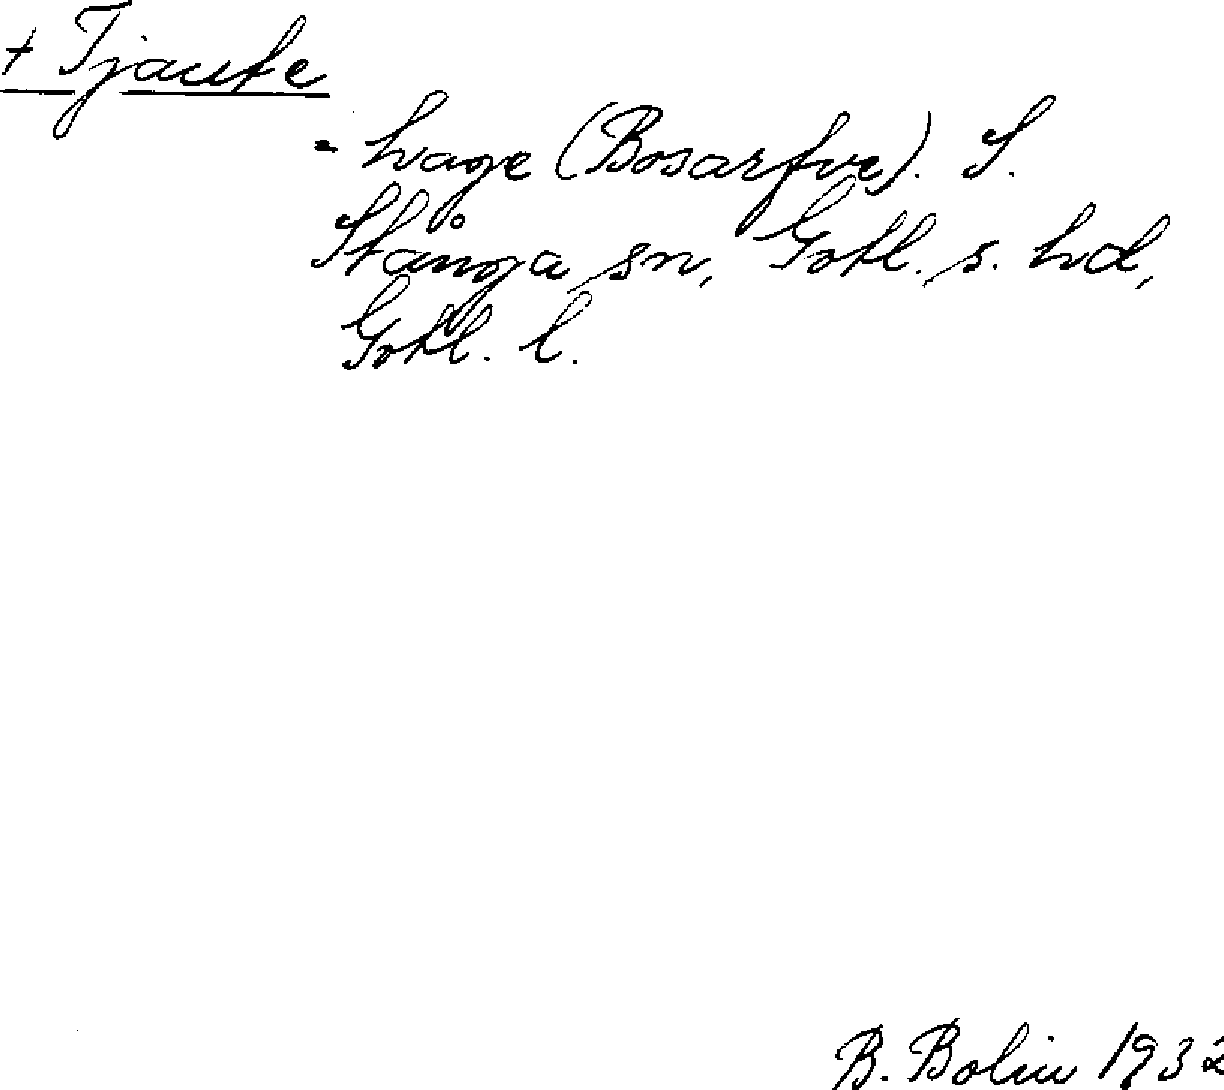 + Tjaufe
- hage (Bosarfve). S.
Stånga sn, Gotl. s. hd,
Gotl. l.
B. Bolin 1932